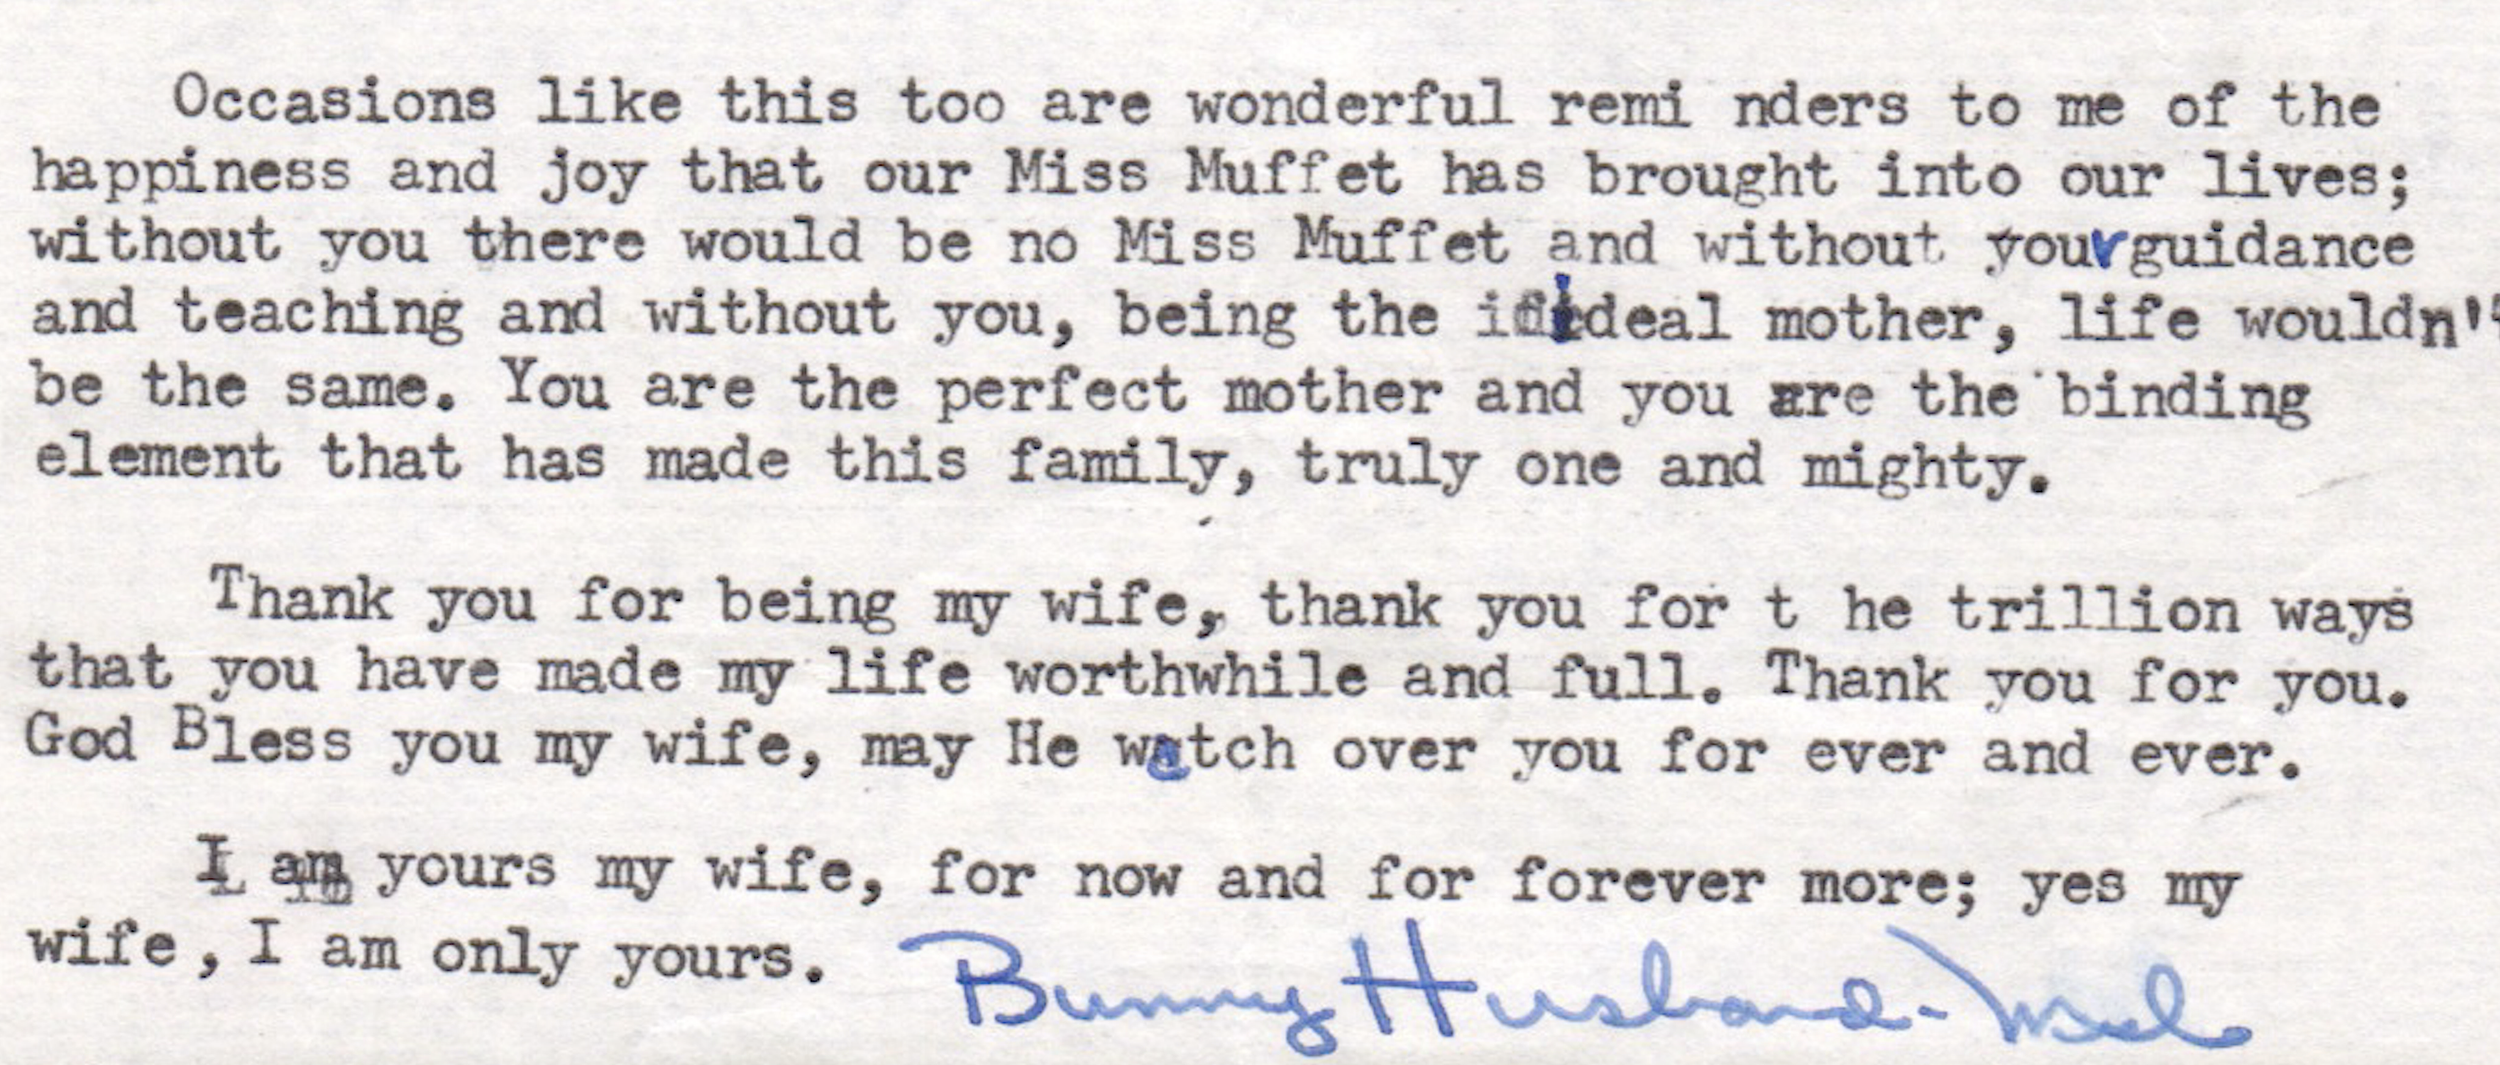 Occasions like this too are wonderful remi nders to me of the
happiness and joy that our Miss Muffet has brought into our lives;
without you there would be no Miss Muffet and without your guidance
and teaching and without you, being the ideal mother, life wouldn't
be the same. You are the perfect mother and you are the binding
element that has made this family, truly one and mighty.
Thank you for being my wife, thank you for t he trillion ways
that you have made my life worthwhile and full. Thank you for you.
God Bless you my wife, may He watch over you for ever and ever.
I am yours my wife, for now and for forever more; yes my
wife, I am only yours.
Bunny Husband - Mel